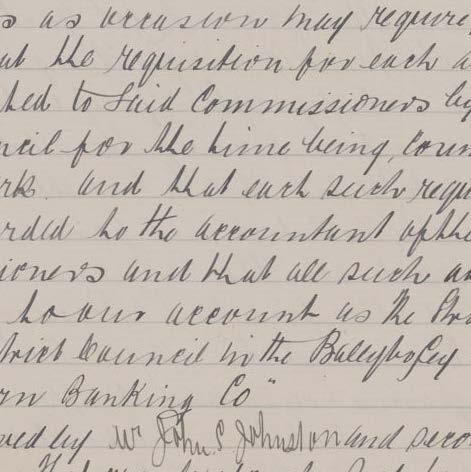 s as occasion may require,
at the requisition for each a
hed to Said Commissioners by
ncil for the time being, Coun
rk. and that each such requ
rded to the accountant of the
ioners and that all such a
to our account as the Str
trict Council in the Ballybofey
rn Banking Co"
ved by Mr John S Johnston and seco